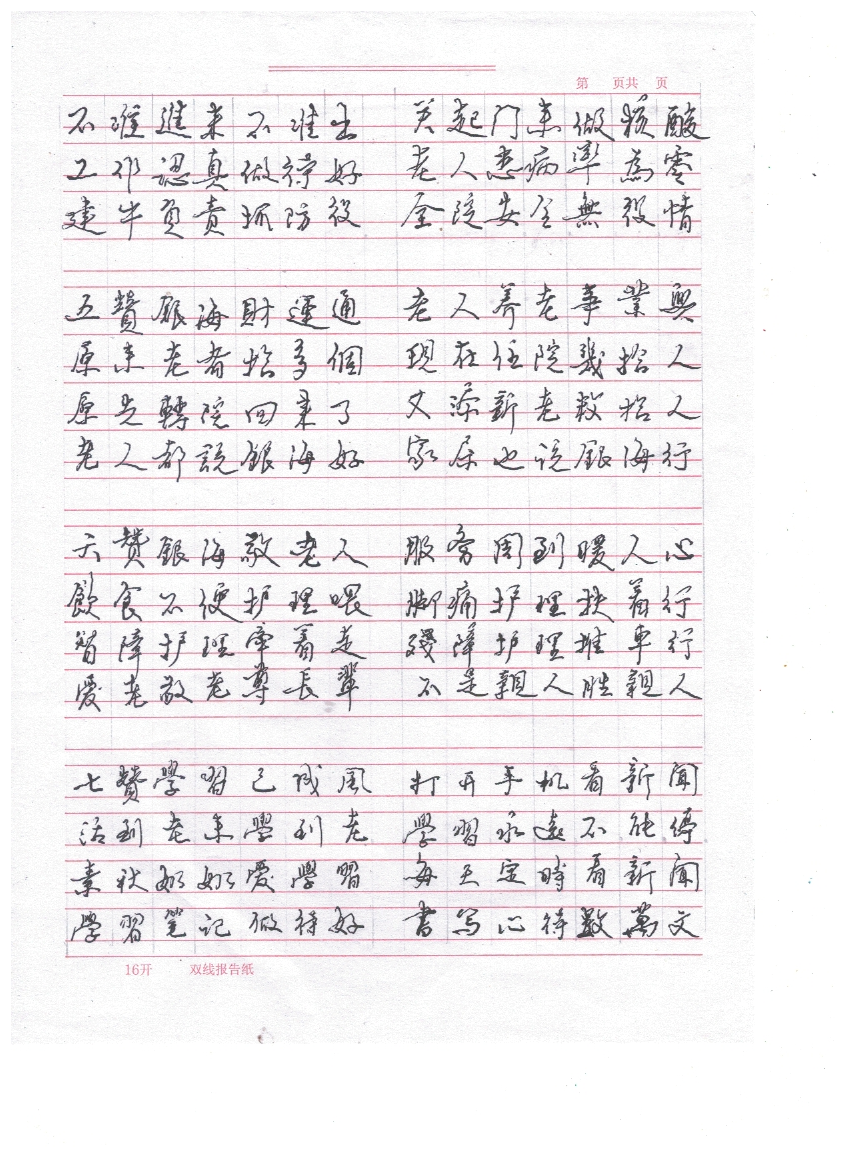 第 页共 页
不准進来不准出 关起门来做核酸
工作認真做得好 老人患病率為零
建牛負責抓防役 全院安全無役情
五贊銀海財運通 老人养老事業興
原来老者拾多個 現在住院幾拾人
原先轉院回来了 又添新老数拾人
老人都説銀海好 家属也说銀海行
六贊銀海敬老人 服务周到暖人心
飲食不便护理喂 脚痛护理扶着行
智障护理牵着走 殘障护理推車行
愛老敬老尊長輩 不是親人胜親人
七贊學習已成風 打开手机看新闻
活到老来學到老 學習永遠不能停
素秋奶奶愛學習 每天定時看新闻
學習笔记做得好 書写心得數萬文
16开 双线报告纸